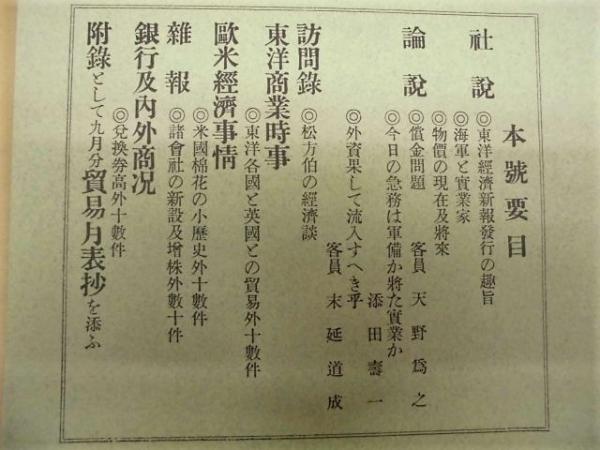 本號要目
社說
◎東洋經濟新報發行の趣旨
◎海軍と實業家
◎物價の現在及將來
論說
◎償金問題 客員 天野爲之
◎今日の急務は軍備か將た實業か
添田壽一
◎外資果して流入すへき乎
客員 末延道成
訪問錄
◎松方伯の經濟談
東洋商業時事
◎東洋各國と英國との貿易外十數件
歐米經濟事情
◎米國棉花の小歷史外十數件
雜報
◎諸會社の新設及增株外數十件
銀行及內外商況
◎兌換券高外十數件
附錄として九月分貿易月表抄を添ふ